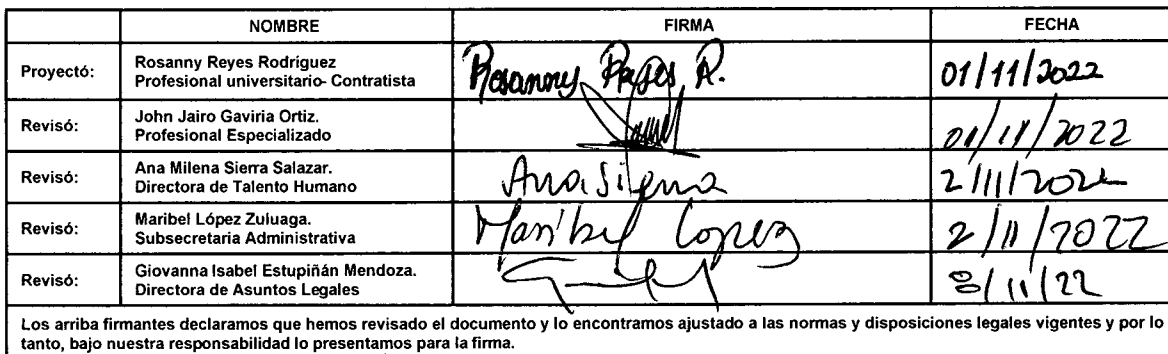 NOMBRE FIRMA FECHA
Proyectó: Rosanny Reyes Rodríguez
Profesional universitario- Contratista
Rosanny Reyes R. 01/11/2022
Revisó: John Jairo Gaviria Ortiz.
Profesional Especializado
01/11/2022
Revisó: Ana Milena Sierra Salazar.
Directora de Talento Humano
2/11/2022
Revisó: Maribel López Zuluaga.
Subsecretaria Administrativa
Maribel Lopez 2/11/2022
Revisó: Giovanna Isabel Estupiñán Mendoza.
Directora de Asuntos Legales
Los arriba firmantes declaramos que hemos revisado el documento y lo encontramos ajustado a las normas y disposiciones legales vigentes y por lo
tanto, bajo nuestra responsabilidad lo presentamos para la firma.